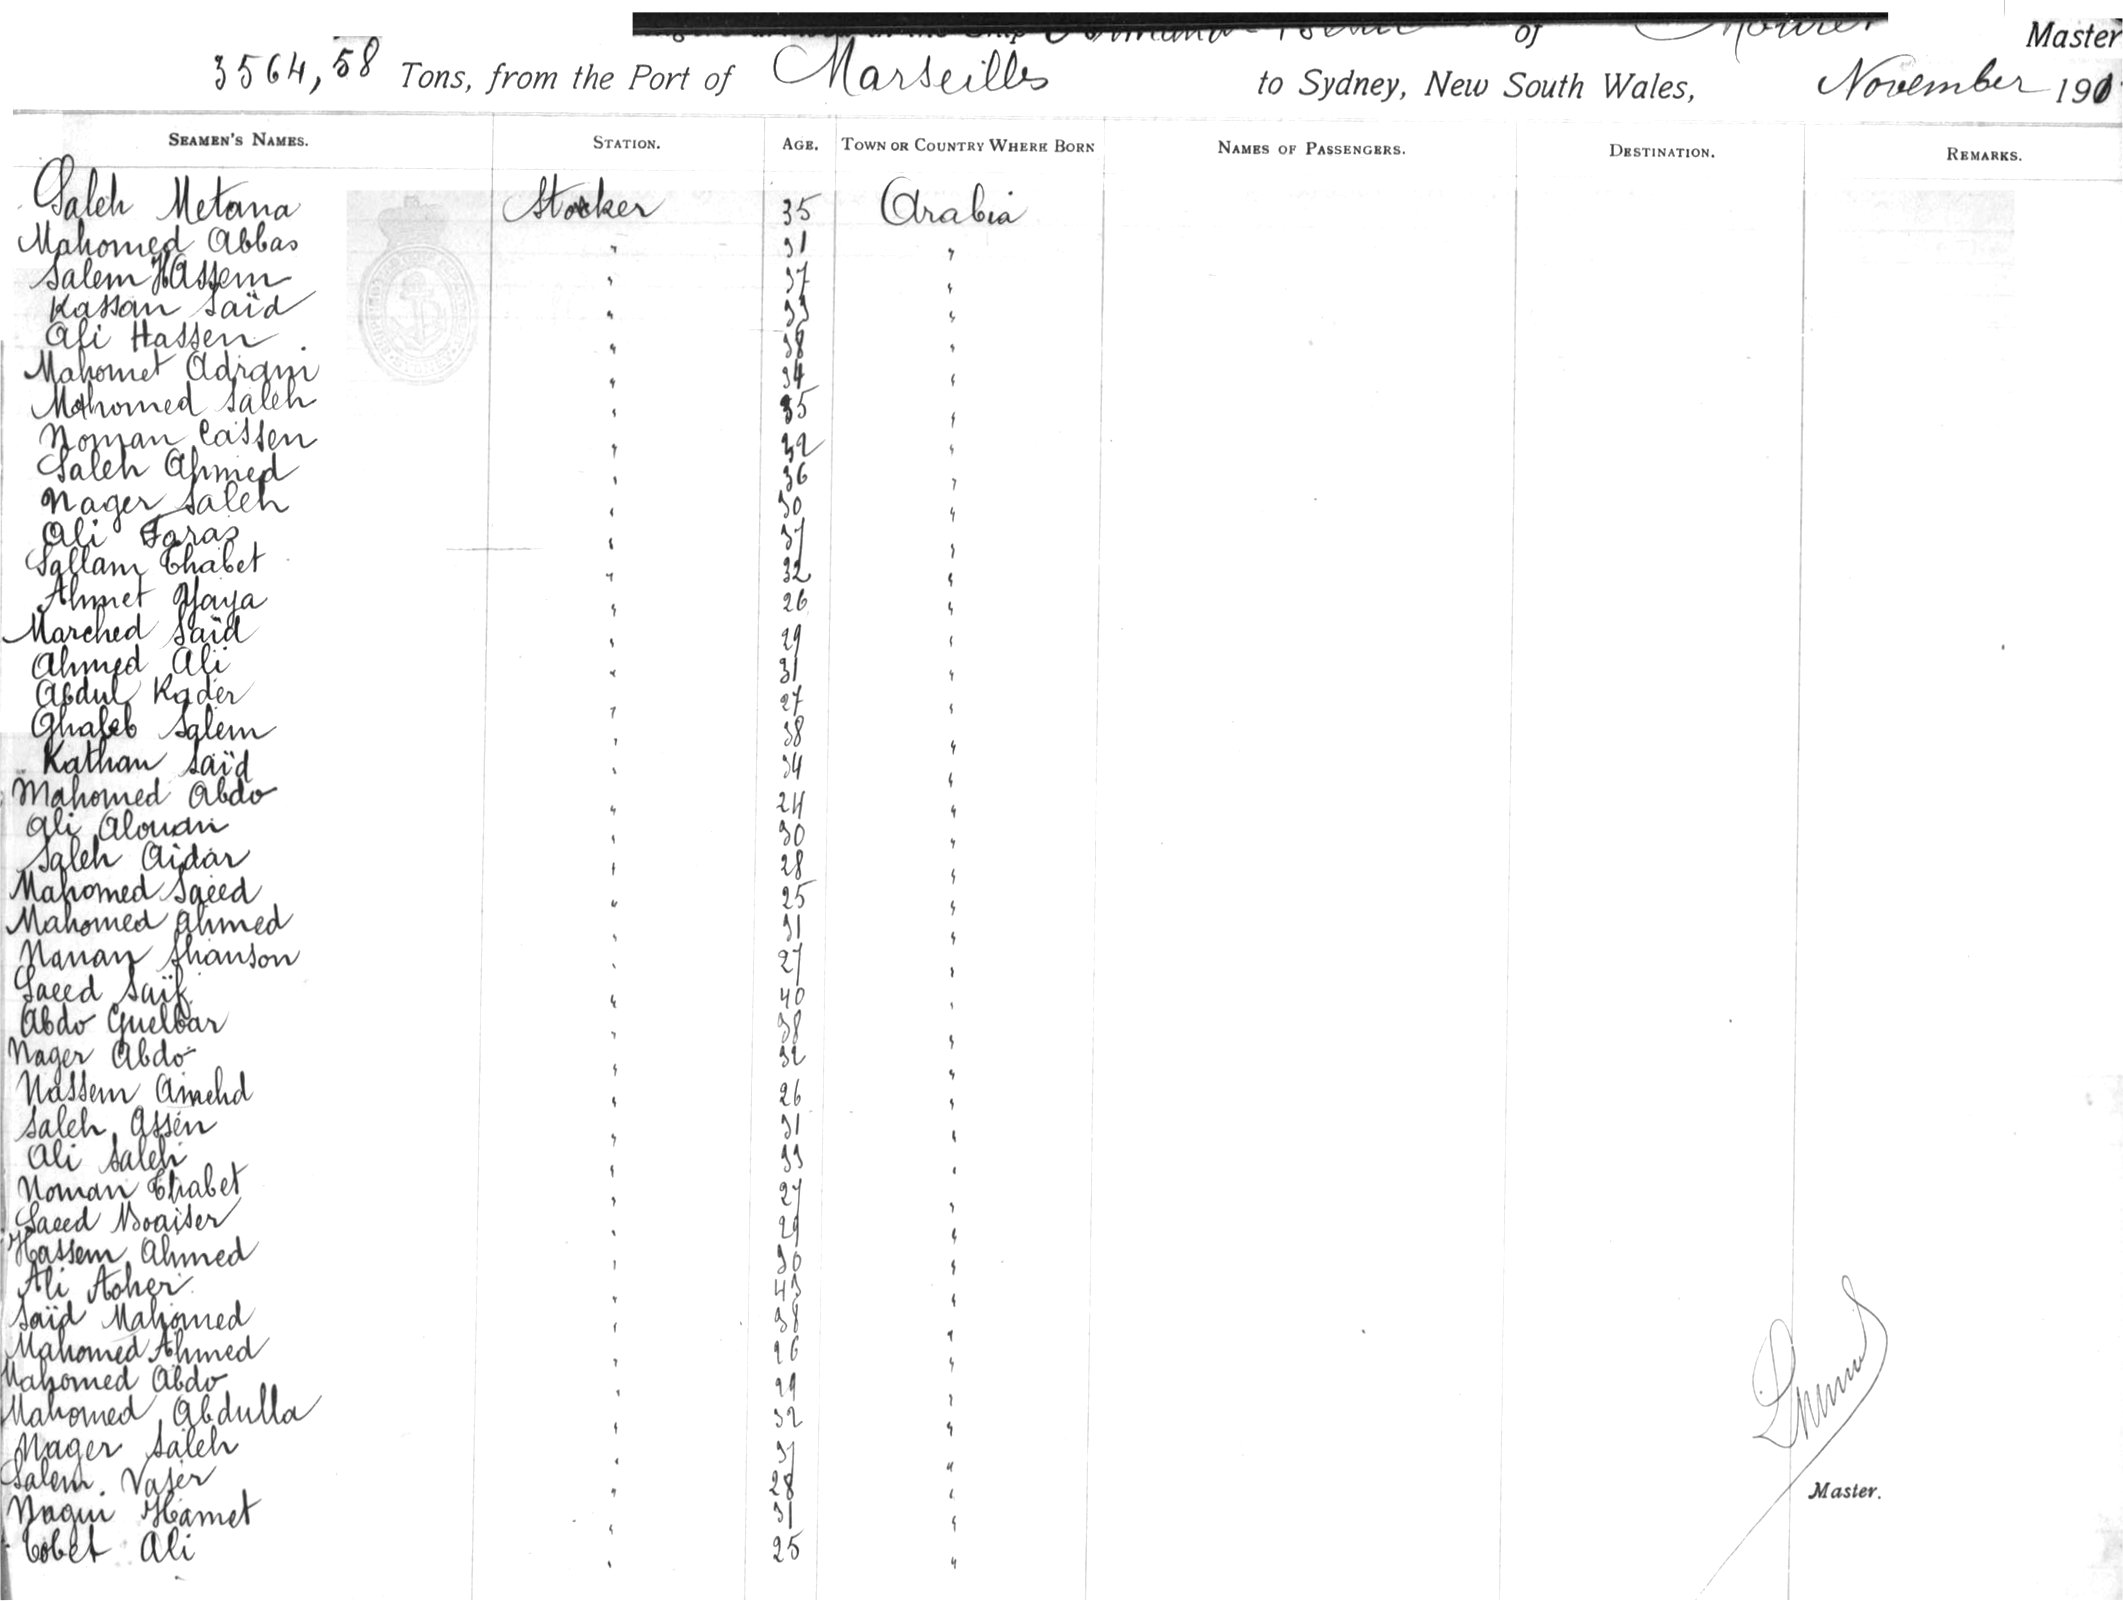 of Master
3564,58 Tons, from the Port of Marseilles to Sydney, New South Wales, November 190
SEAMEN'S NAMES. STATION. AGE. TOWN OR COUNTRY WHERE BORN NAMES OF PASSENGERS. DESTINATION. REMARKS.
Saleh Metana Stocker 35 Arabia
Mahomed Abbas " 31 "
Salem HAssem " 37 "
Kassan Saïd " 33 "
Ali Hassen " 38 "
Mahomet Adrani " 34 "
Mahomed Saleh " 35 "
Noman Cassen " 32 "
Saleh Ahmed " 36 "
Nager Saleh " 30 "
Ali Faras " 37 "
Sallam Thabet " 32 "
Ahmet Yaya " 26 "
Marched Saïd " 29 "
Ahmed Ali " 31 "
Abdul Kader " 27 "
Ghaleb Salem " 38 "
Kathan Saïd " 34 "
Mahomed Abdo " 24 "
Ali Alouan " 30 "
Saleh Aidar " 28 "
Mahomed Saeed " 25 "
Mahomed Ahmed " 31 "
Manan Shanson " 27 "
Saeed Saïf " 40 "
Abdo Guelbar " 38 "
Nager Abdo " 32 "
Nassem Amehd " 26 "
Saleh Assen " 31 "
Ali Saleh " 33 "
Noman Thabet " 27 "
Saeed Moaiser " 29 "
Hassem Ahmed " 30 "
Ali Asher " 43 "
Saïd Mahomed " 38 "
Mahomed Ahmed " 26 "
Mahomed Abdo " 29 "
Mahomed Abdulla " 32 "
Nager Saleh " 37 "
Salem Naser " 28 "
Master.
Nagui Hamet " 31 "
Tobet Ali " 25 "